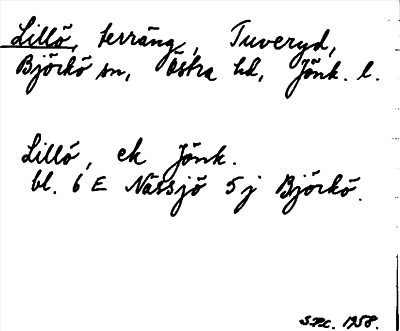 Lillö, terräng, Tuveryd,
Björkö sn, Östra hd, Jönk. l.
Lillö, ek Jönk.
bl. 6 E Nässjö 5 j Björkö.
S.P.C. 1958.